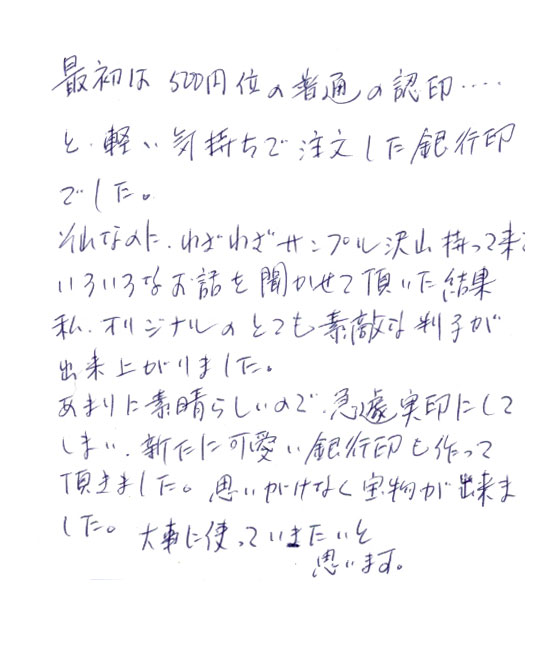 最初は 500円位の普通の認印‥‥
と、軽い気持ちで注文した銀行印
でした。
それなのに、わざわざサンプル沢山持って来
いろいろなお話を聞かせて頂いた結果
私、オリジナルのとても素敵な判子が
出来上がりました。
あまりに素晴らしいので、急遽実印にして
しまい、新たに可愛い銀行印も作って
頂きました。思いがけなく宝物が出来ま
した。大事に使っていきたいと
思います。